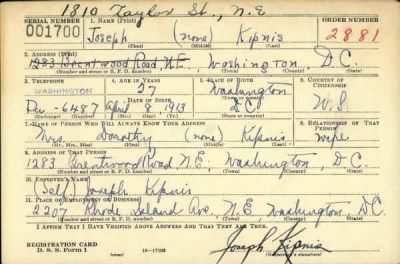 1810 Taylor St., N.E.
SERIAL NUMBER 1. NAME (Print) ORDER NUMBER
001700 Joseph (none) Kipnis 2881
(First) (Middle) (Last)
2. ADDRESS (Print)
1283 Brentwood Road N.E., Washington, D.C.
(Number and street or R. F. D. number) (Town) (County) (State)
3. TELEPHONE 4. AGE IN YEARS 5. PLACE OF BIRTH 6. COUNTRY OF CITIZENSHIP
WASHINGTON 27 Washington
DATE OF BIRTH (Town or county)
Du-6487 April 8 1913 D.C. U.S.
(Exchange) (Number) (Mo.) (Day) (Yr.) (State or country)
7. NAME OF PERSON WHO WILL ALWAYS KNOW YOUR ADDRESS 8. RELATIONSHIP OF THAT PERSON
Mrs. Dorothy (none) Kipnis wife
(Mr., Mrs., Miss) (First) (Middle) (Last)
9. ADDRESS OF THAT PERSON
1283 Brentwood Road N.E., Washington, D.C.
(Number and street or R. F. D. number) (Town) (County) (State)
10. EMPLOYER'S NAME
(Self) Joseph Kipnis
11. PLACE OF EMPLOYMENT OR BUSINESS
2207 Rhode Island Ave., N.E, Washington, D.C.
(Number and street or R. F. D. number) (Town) (County) (State)
I AFFIRM THAT I HAVE VERIFIED ABOVE ANSWERS AND THAT THEY ARE TRUE.
REGISTRATION CARD
D. S. S. Form 1 16—17105 Joseph Kipnis